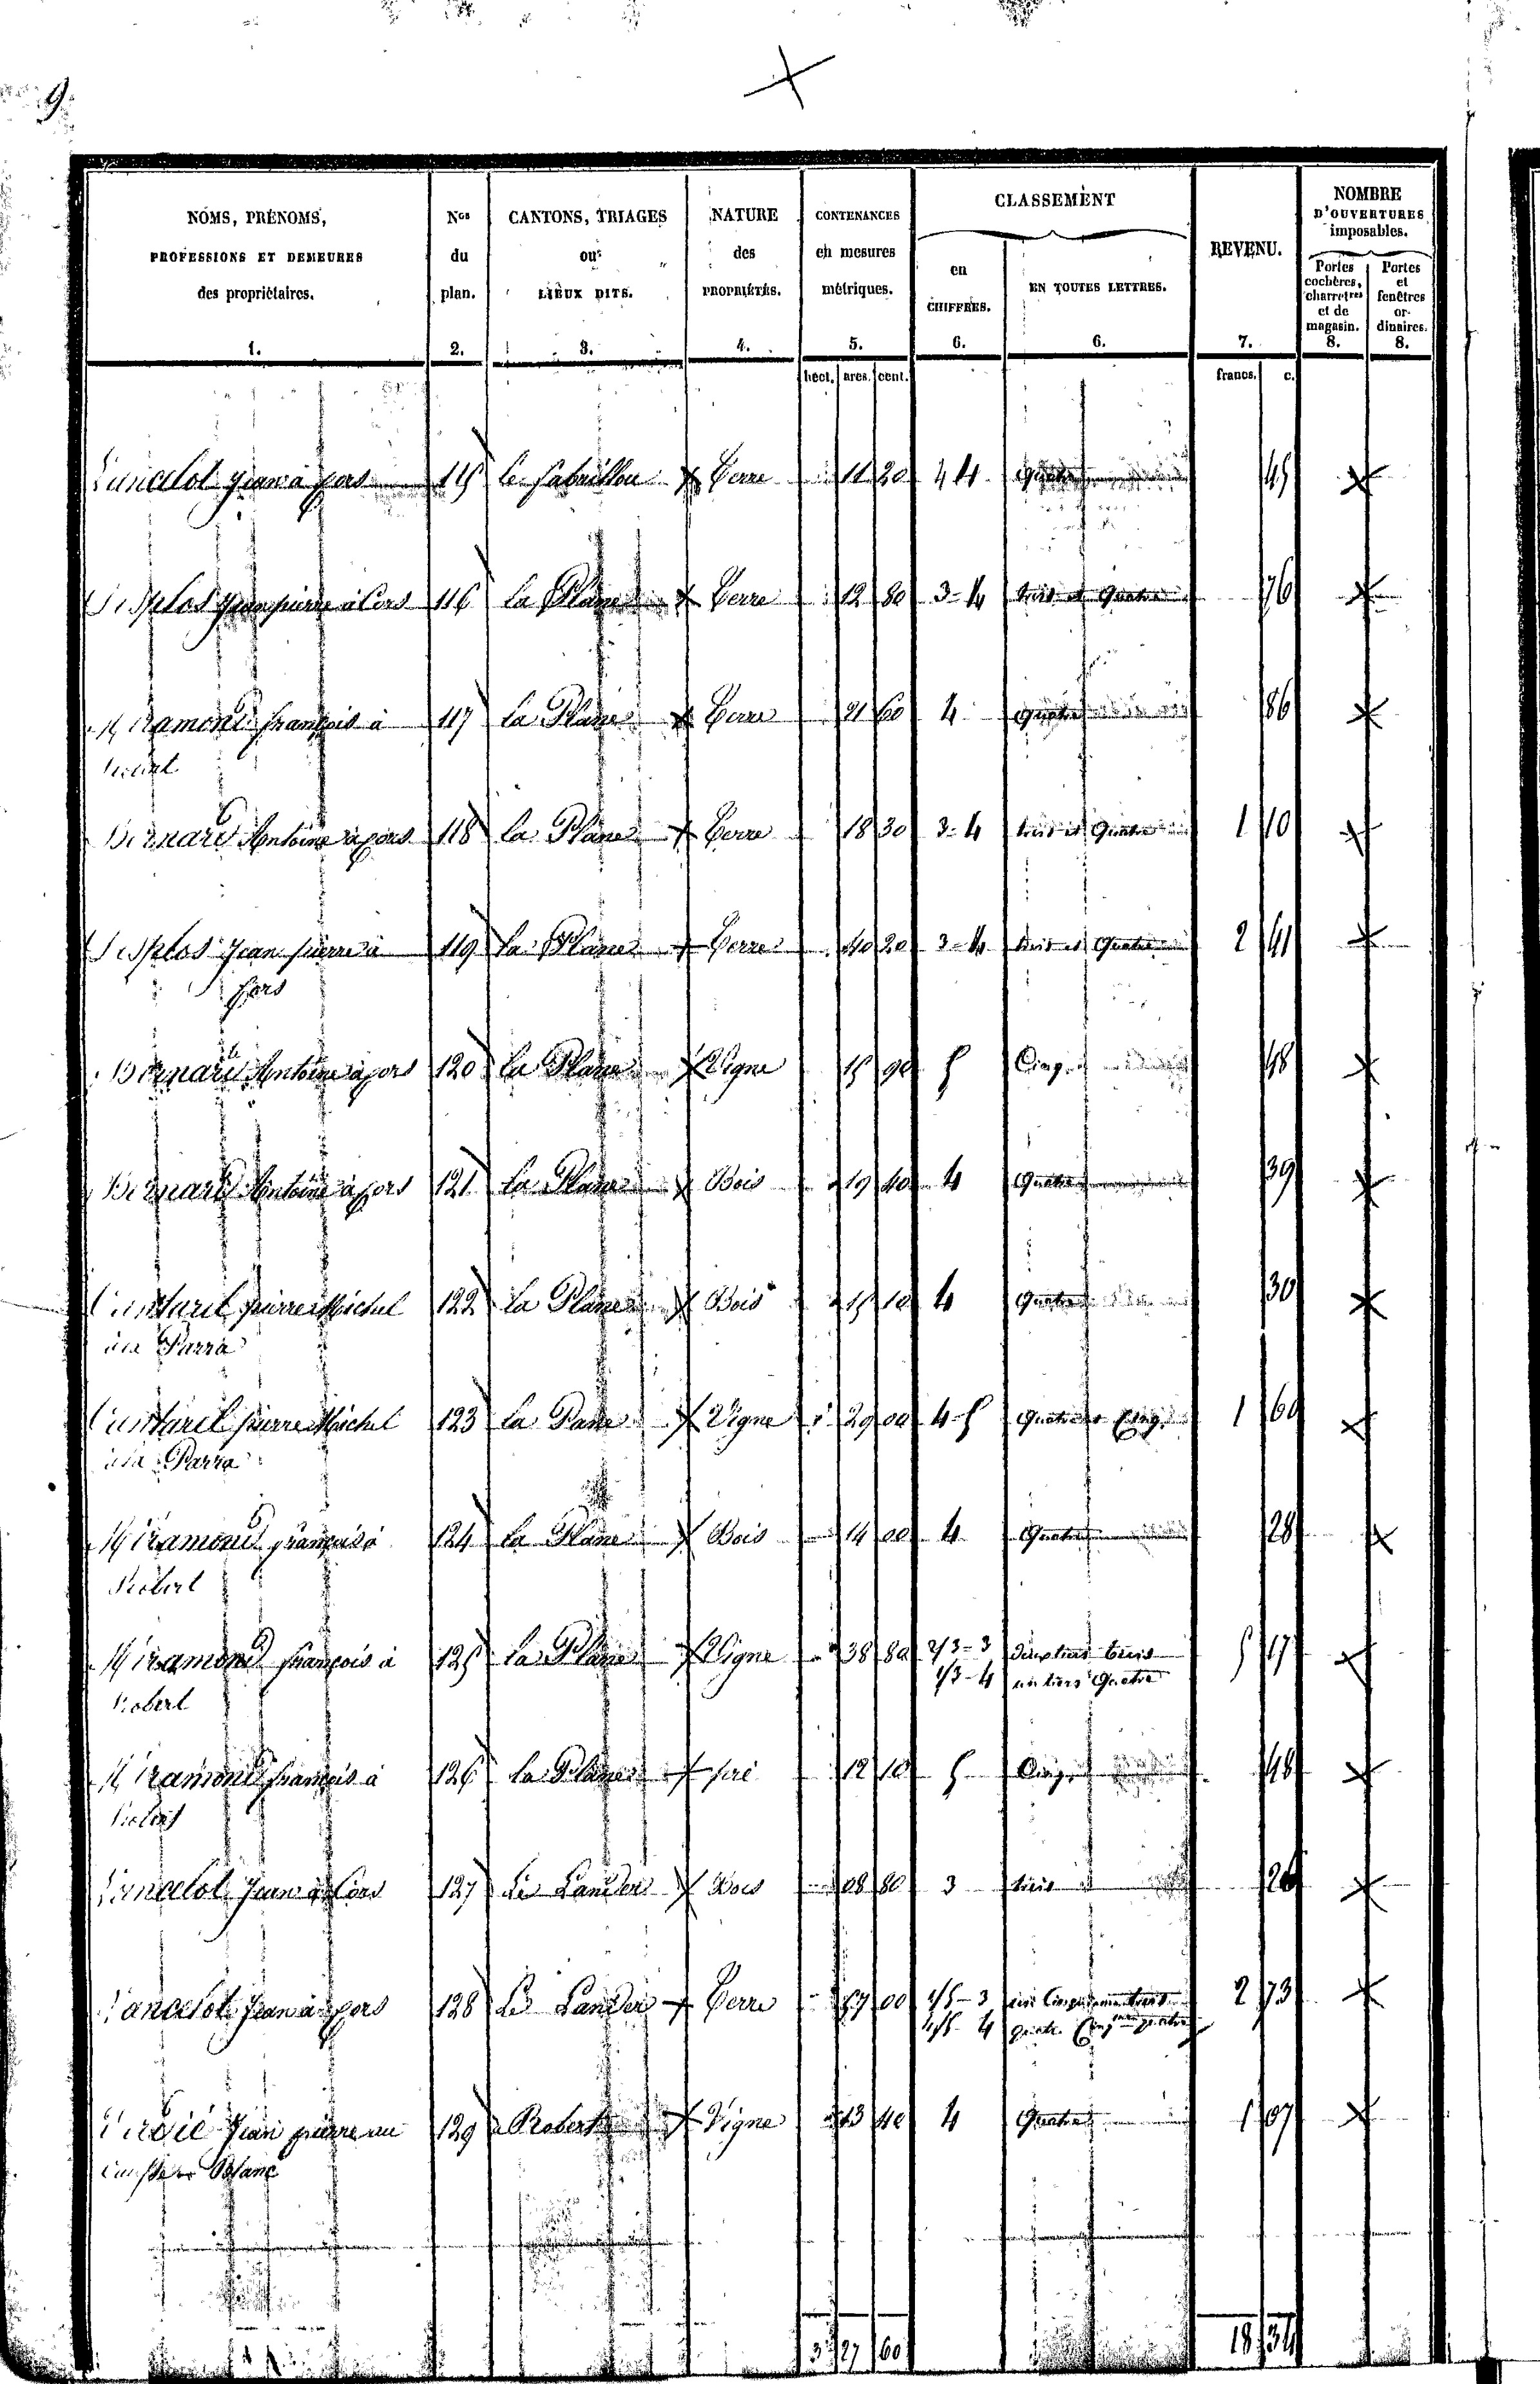 9.
NOMS, PRÉNOMS,
PROFESSIONS ET DEMEURES
des propriétaires.
1.
Nos
du
plan.
2.
CANTONS, TRIAGES
ou
LIEUX DITS.
3.
NATURE
des
PROPRIÉTÉS.
4.
CONTENANCES
en mesures
métriques.
5.
CLASSEMENT
en
CHIFFRES.
6.
EN TOUTES LETTRES.
6.
REVENU.
7.
NOMBRE
D'OUVERTURES
imposables.
Portes
cochères,
charretres
et de
magasin.
8.
Portes
et
fenêtres
or-
dinaires.
8.
hect. ares. cent. francs. c.
Lancelot Jean à fors 115 Terre 11 20 4 Quatre 45
Desplos Jean pierre à fors 116 la Plane Terre 12 80 3-4 trois et Quatre 76
Miramond françois à 117 la Plane Terre 21 60 4 Quatre 86
Robert
Bernard Antoine à fors 118 la Plane Terre 18 30 3-4 trois et Quatre 1 10
Desplos Jean pierre à 119 la Plane Terre 40 20 3-4 trois et Quatre 2 41
fors
Bernard Antoine à fors 120 la Plane Vigne 15 90 5 Cinq 48
Bernard Antoine à fors 121 la Plane Bois 19 40 4 Quatre 39
pierre Michel 122 la Plane Bois 15 10 4 Quatre 30
à la Parra
pierre Michel 123 la Plane Vigne 29 00 4-5 Quatre et Cinq 1 60
à la Parra
Miramond françois à 124 la Plane Bois 14 00 4 Quatre 28
Robert
Miramond françois à 125 la Plane Vigne 38 80 2/3-3 deux tiers trois 5 17
Robert 1/3-4 un tiers Quatre
Miramond françois à 126 la Plane pré 12 10 5 Cinq 48
Robert
Lancelot Jean à fors 127 Bois 08 80 3 trois 26
Lancelot Jean à fors 128 Terre 57 00 1/5-3 un Cinquième trois 2 73
4/5-4 quatre Cinq quatre
Jean pierre au 129 Robert Vigne 13 40 4 Quatre 1 07
Blanc
3 27 60 18 34